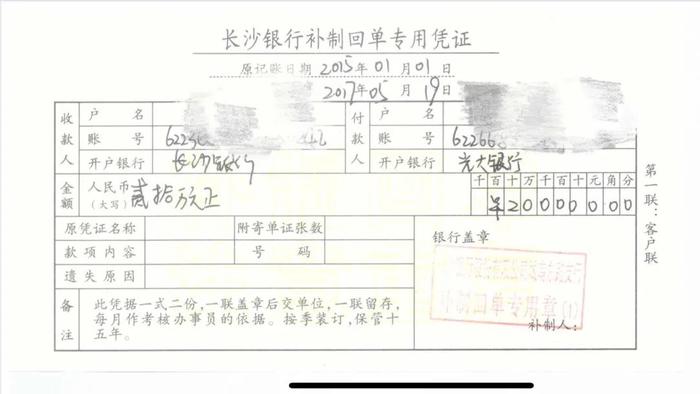 长沙银行补制回单专用凭证
原记账日期 2015年01月01日
2017年05月19日
收款人 户名 付款人 户名
账号 账号 62266
开户银行 长沙银行 开户银行 光大银行
金额 人民币(大写) 贰拾万元正 千百十万千百十元角分
¥20000000
原凭证名称 附寄单证张数 银行盖章
款项内容 号码
遗失原因
补制回单专用章(1)
备注 此凭据一式二份,一联盖章后交单位,一联留存,
每月作考核办事员的依据。按季装订,保管十
五年。
补制人:
第一联:客户联